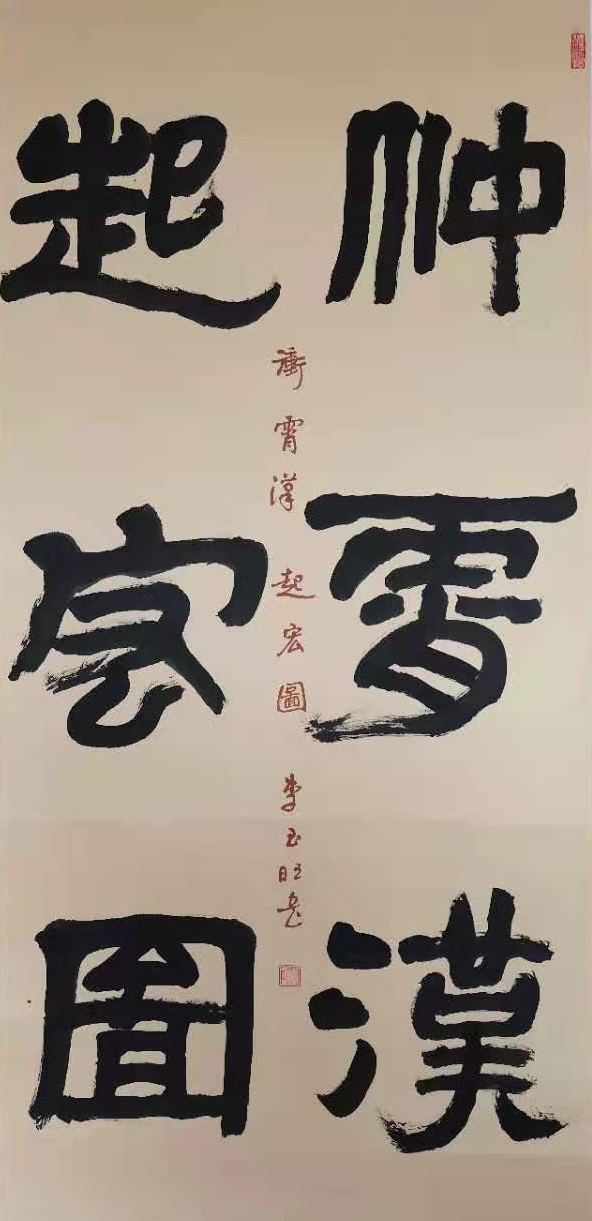 沖霄漢
起宏圖
衝霄漢 起宏圖 李玉旺